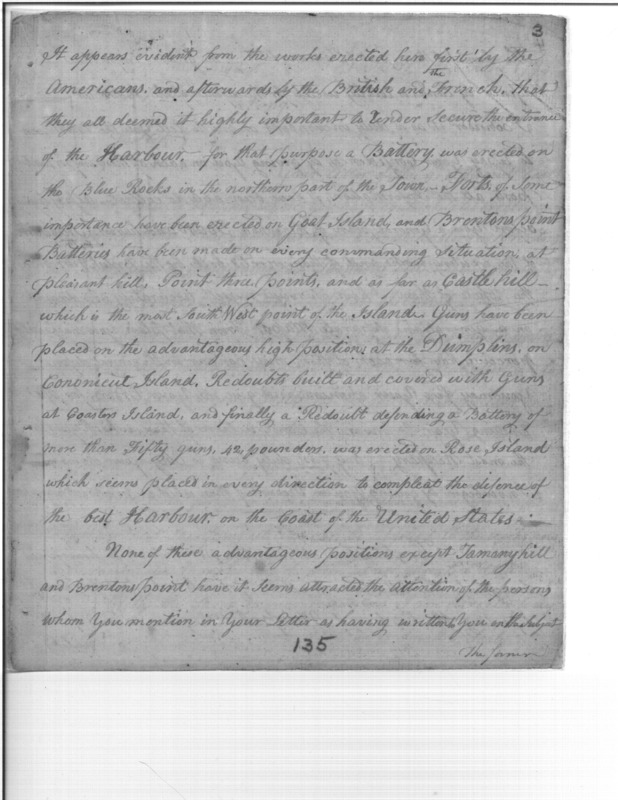 3
It appears evident from the works erected here first by the
Americans. and afterwards by the British and the French, that
they all deemed it highly important to Render Secure the entrance
of the Harbour. for that purpose a Battery was erected on
the Blue Rocks in the northern part of the Town,- Forts of Some
importance have been erected on Goat Island, and Brentons point
Batteries have been made on every commanding Situation, at
pleasant hill, Point three points, and as far as Castle hill -
which is the most South West point of the Island. Guns have been
placed on the advantageous high position, at the Dumplins, on
Cononicut Island, Redoubts built and covered with Guns
at Coasters Island, and finally a Redoubt defending a Battery of
more than Fifty guns, 42 pounders, was erected on Rose Island
which seems placed in every direction to compleat the defence of
the best Harbour on the Coast of the United States. -
None of these advantageous positions except Tamany hill
and Brentons point have it Seems attracted the Attention of the persons
whom You mention in Your Letter as having written You on the Subject
135
The